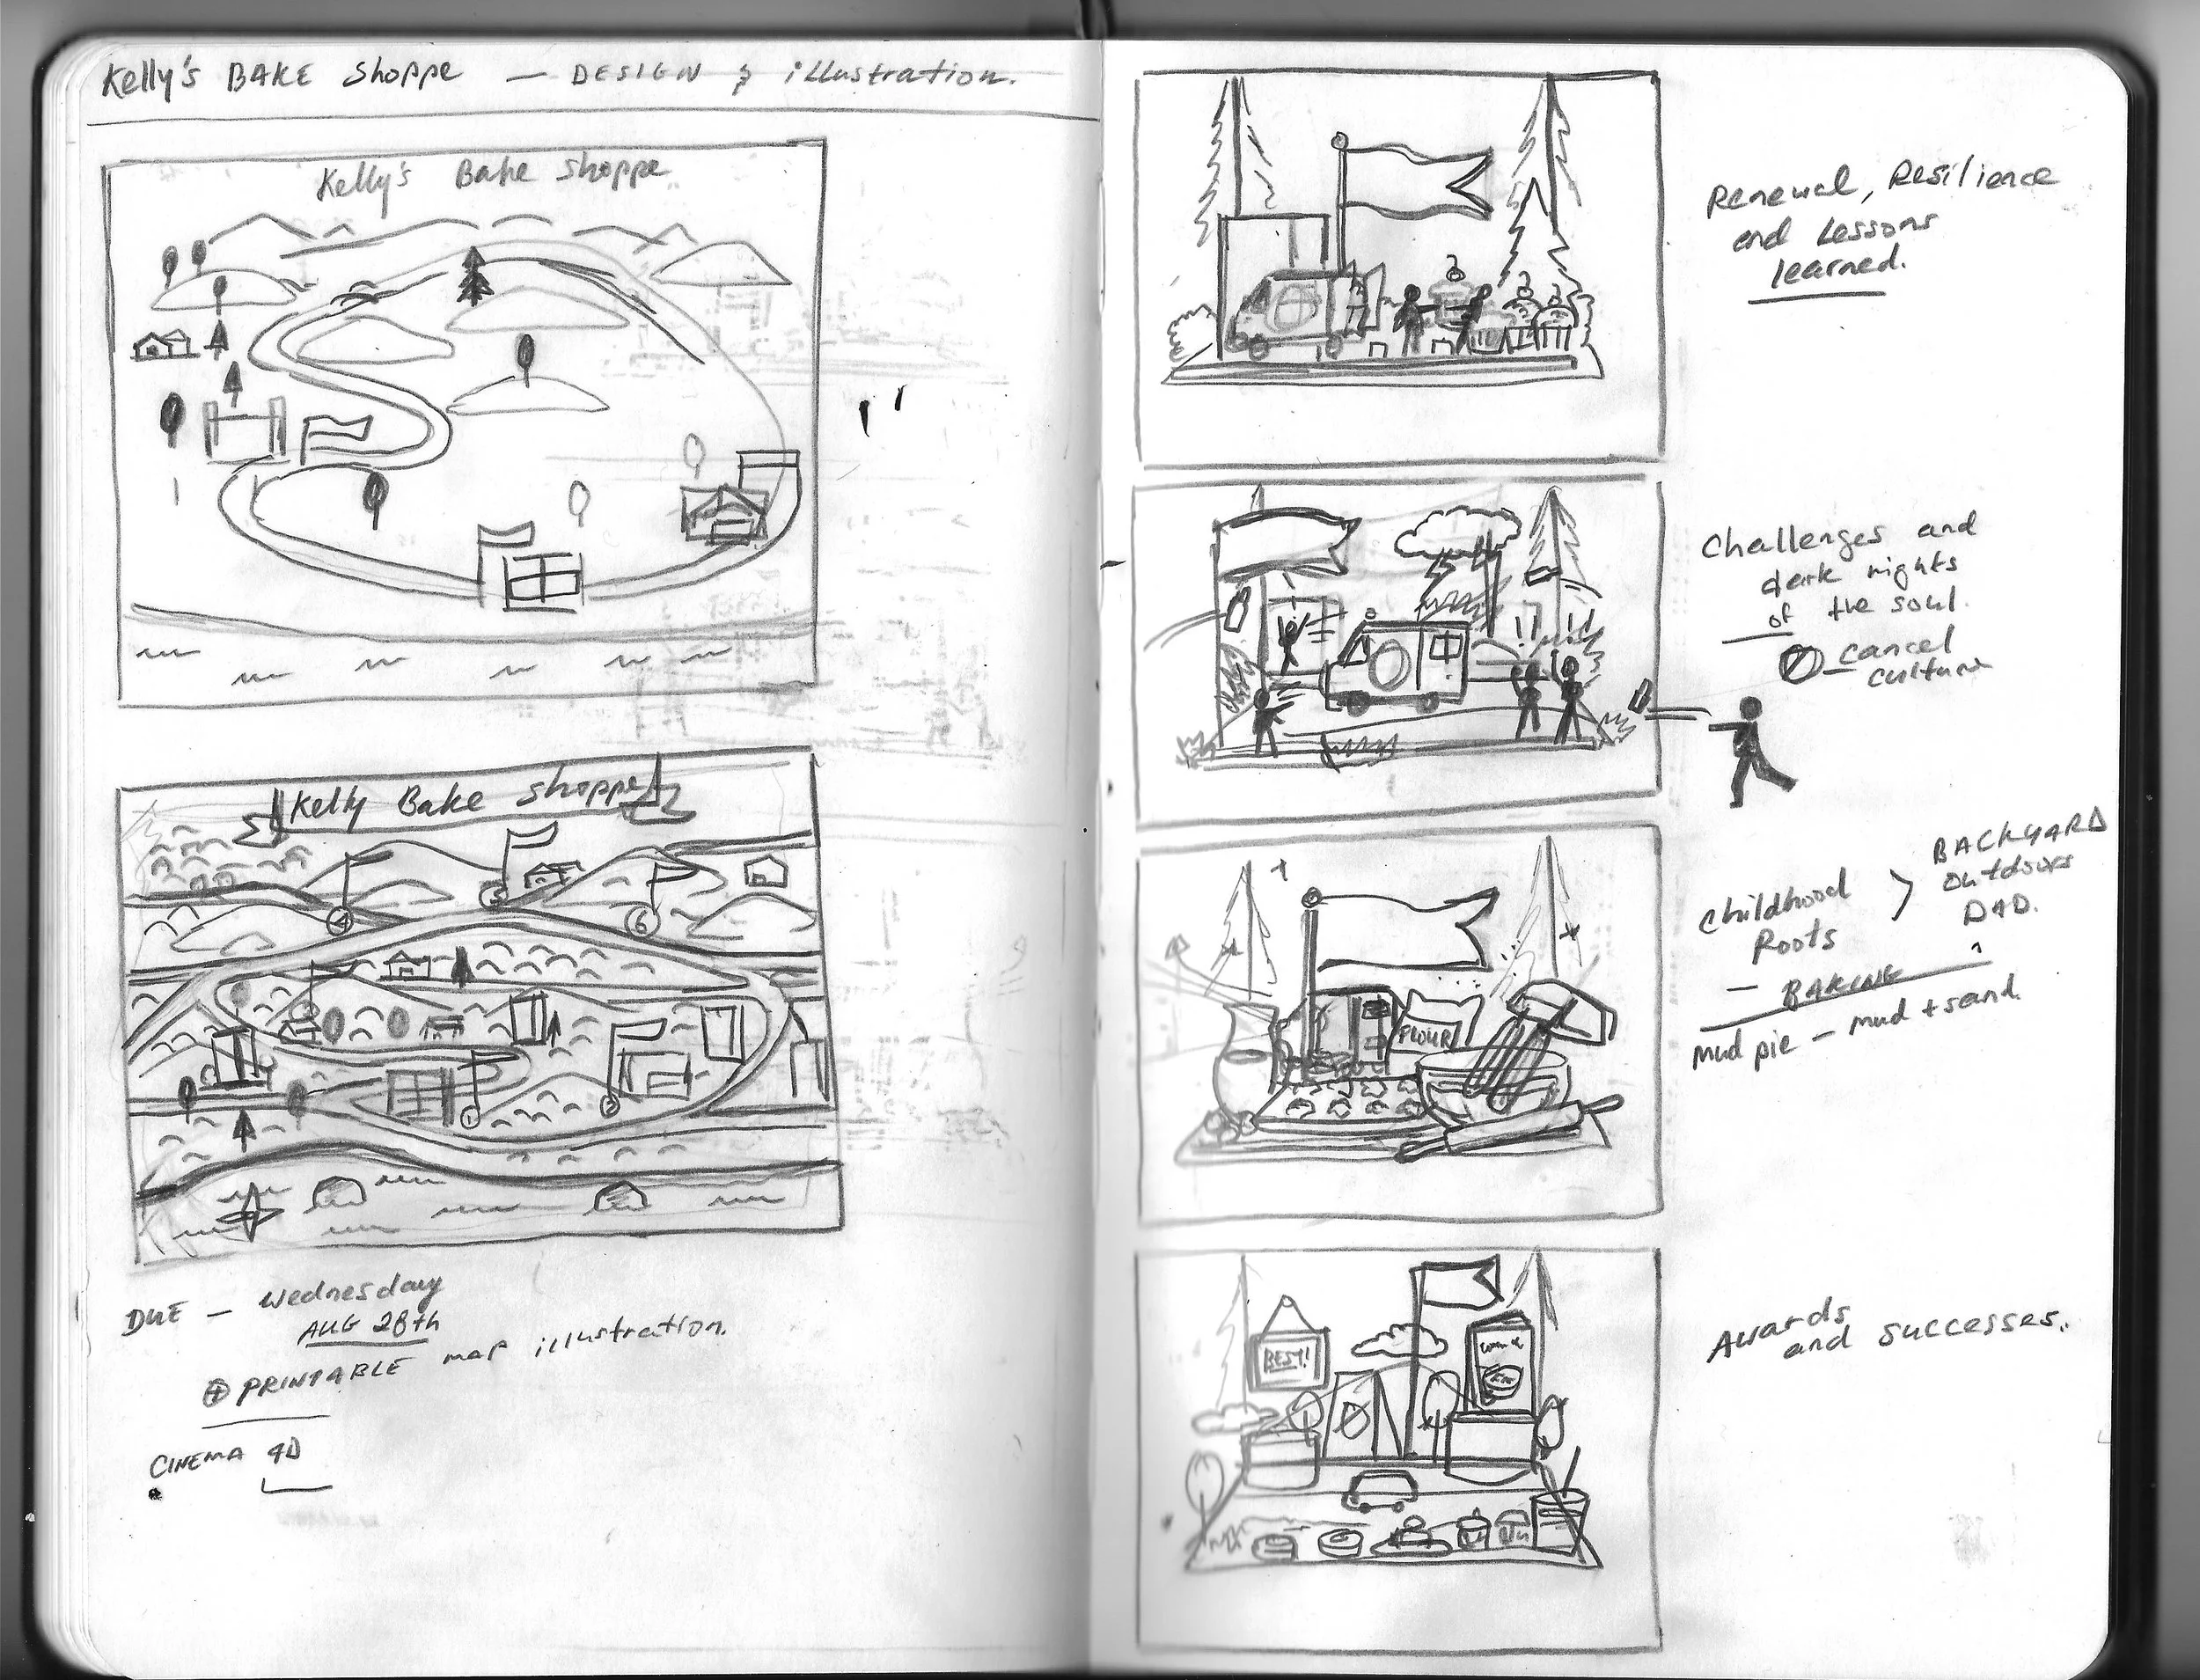 Kelly's BAKE Shoppe — DESIGN & illustration.
Kelly's Bake Shoppe
Kelly Bake Shoppe
4
5
6
1
2
DUE — Wednesday
AUG 28th
⊕ PRINTABLE map illustration.
CINEMA 4D
Renewal, Resilience
and Lessons
learned.
Challenges and
dark nights
of the soul.
cancel
culture
Childhood
Roots
> BACKYARD
outdoors
DAD.
— BAKING
mud pie — mud + sand.
FLOUR
BEST!
Awards
and successes.